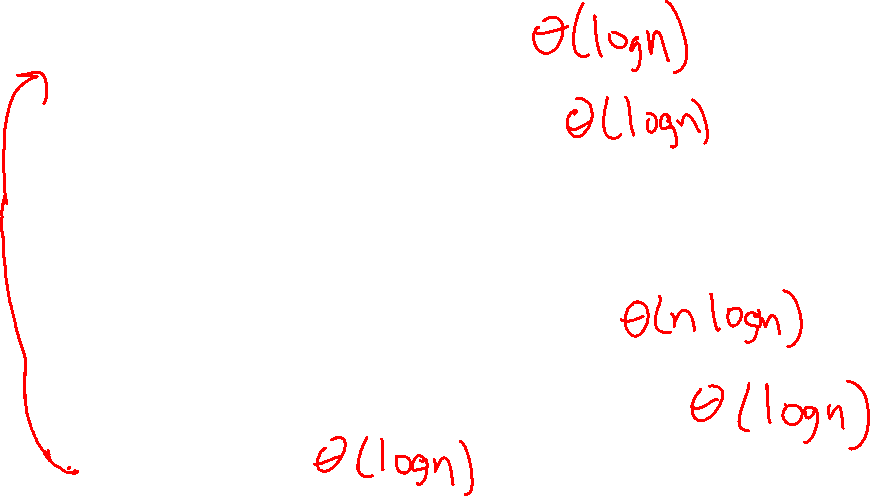 θ(logn)
θ(logn)
θ(n logn)
θ(logn)
θ(logn)